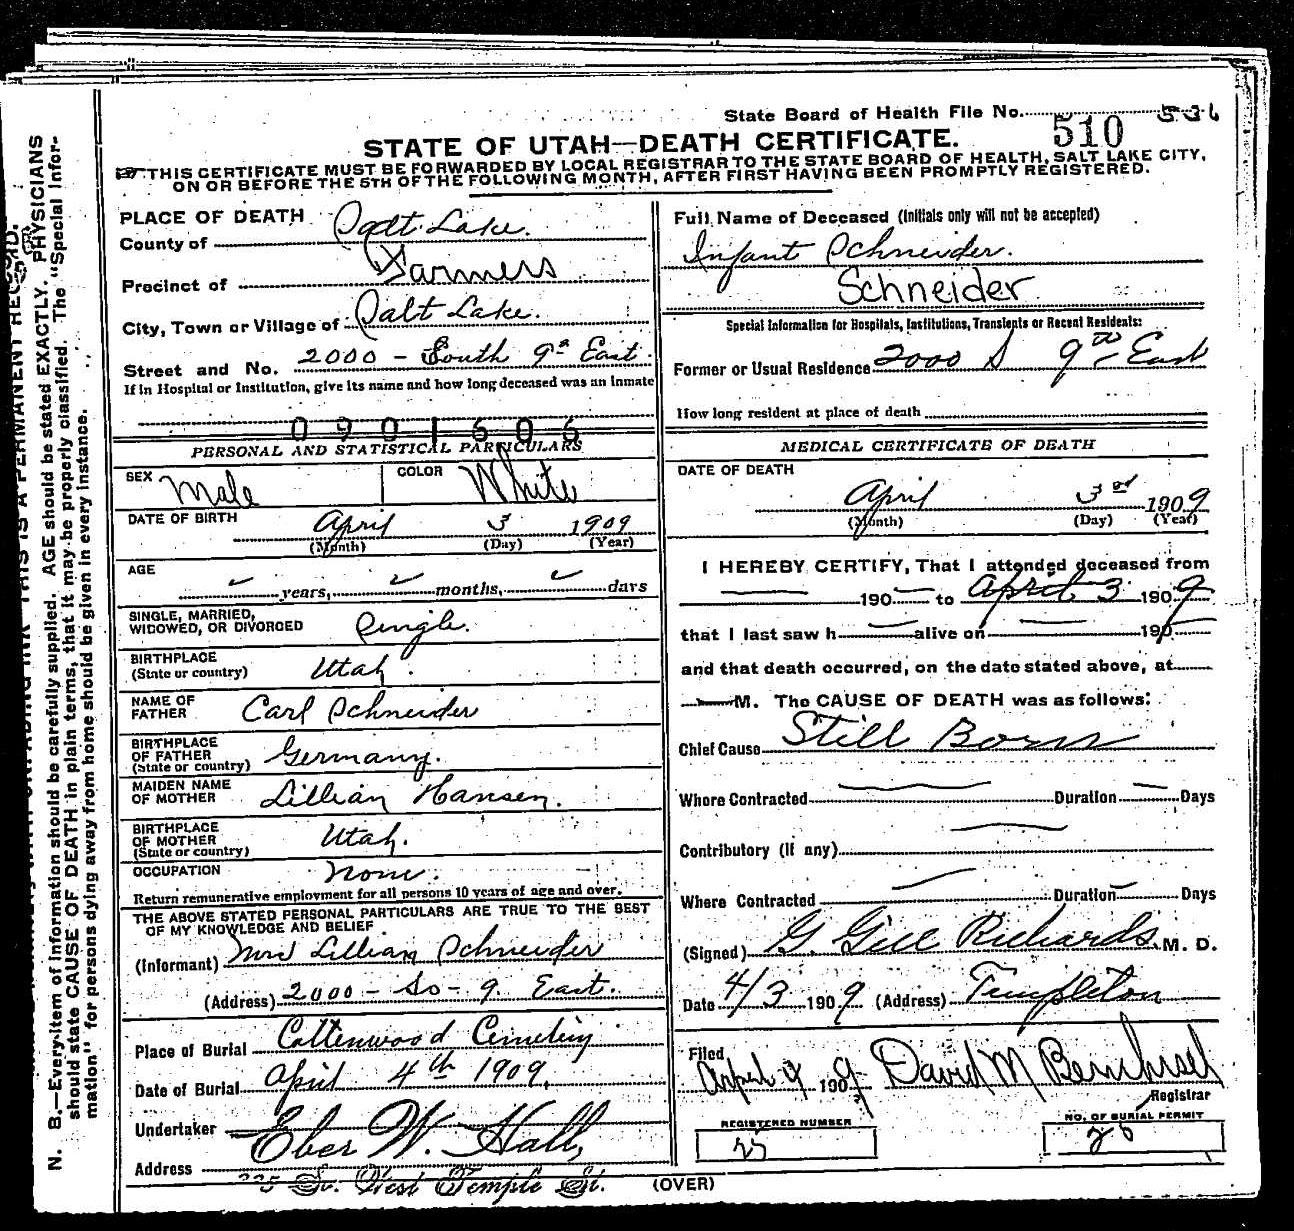 State Board of Health File No. 536
510
STATE OF UTAH—DEATH CERTIFICATE.
THIS CERTIFICATE MUST BE FORWARDED BY LOCAL REGISTRAR TO THE STATE BOARD OF HEALTH, SALT LAKE CITY,
ON OR BEFORE THE 5TH OF THE FOLLOWING MONTH, AFTER FIRST HAVING BEEN PROMPTLY REGISTERED.
PLACE OF DEATH
County of Salt Lake.
Precinct of Farmers
City, Town or Village of Salt Lake.
Street and No. 2000 - South 9th East.
If in Hospital or Institution, give its name and how long deceased was an inmate
0901606
PERSONAL AND STATISTICAL PARTICULARS
SEX Male COLOR White
DATE OF BIRTH April 3 1909
(Month) (Day) (Year)
AGE
years, months, days
SINGLE, MARRIED,
WIDOWED, OR DIVORCED Single.
BIRTHPLACE
(State or country) Utah.
NAME OF
FATHER Carl Schneider
BIRTHPLACE
OF FATHER
(State or country) Germany.
MAIDEN NAME
OF MOTHER Lillian Hansen.
BIRTHPLACE
OF MOTHER
(State or country) Utah.
OCCUPATION None.
Return remunerative employment for all persons 10 years of age and over.
THE ABOVE STATED PERSONAL PARTICULARS ARE TRUE TO THE BEST
OF MY KNOWLEDGE AND BELIEF
(Informant) Mrs Lillian Schneider
(Address) 2000 - So - 9. East.
Place of Burial Cottenwood Cemetery
Date of Burial April 4th 1909.
Undertaker Eber W. Hall,
Address 225 So. West Temple St.
(OVER)
Full Name of Deceased (Initials only will not be accepted)
Infant Schneider.
Schneider
Special Information for Hospitals, Institutions, Transients or Recent Residents:
Former or Usual Residence 2000 S 9th East
How long resident at place of death
MEDICAL CERTIFICATE OF DEATH
DATE OF DEATH
April 3rd 1909
(Month) (Day) (Year)
I HEREBY CERTIFY, That I attended deceased from
190 to April 3 1909
that I last saw h alive on 190
and that death occurred, on the date stated above, at
M. The CAUSE OF DEATH was as follows:
Chief Cause Still Born
Where Contracted Duration Days
Contributory (if any)
Where Contracted Duration Days
(Signed) G. Gill Richards M. D.
Date 4/3 1909 (Address) Templeton
Filed
April 9 1909 David M
Registrar
REGISTERED NUMBER
NO. OF BURIAL PERMIT
N. B.—Every item of information should be carefully supplied. AGE should be stated EXACTLY. PHYSICIANS
should state CAUSE OF DEATH in plain terms, that it may be properly classified. The "Special Infor-
mation" for persons dying away from home should be given in every instance.
THIS IS A PERMANENT RECORD.